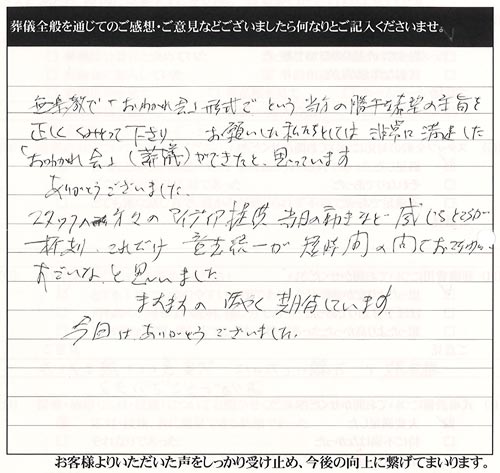 葬儀全般を通じてのご感想・ご意見などございましたら何なりとご記入くださいませ。
無宗教で「おわかれ会」形式でという当方の勝手な希望の主旨を
正しく くみとって下さり お願いした私たちとしては 非常に満足した
「おわかれ会」(葬儀)ができたと、思っています
ありがとうございました。
スタッフの方々の アイディア提供 当日の動きなど 感じるところが
一杯あり、これだけ 意志統一が 短時間の間で
すごいな、と思いました
ますますの ご活やく 期待しています
今回は、ありがとうございました。
お客様よりいただいた声をしっかり受け止め、今後の向上に繋げてまいります。